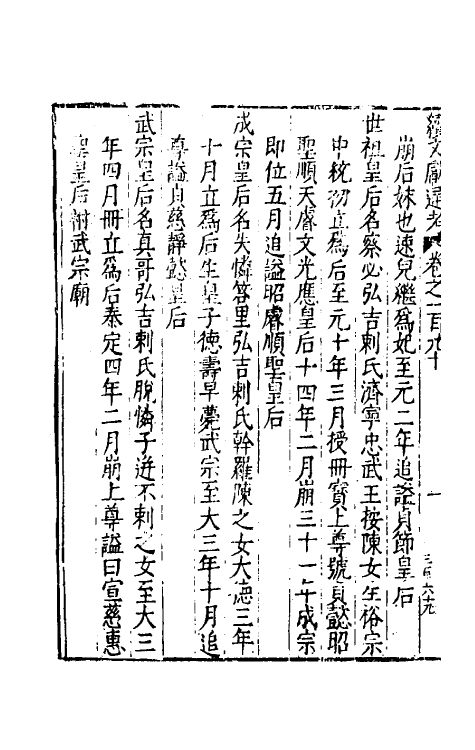 續文獻通考 卷之一百九十
崩后妹也速兒繼爲妃至元二年追謚貞節皇后
世祖皇后名察必弘吉剌氏濟寧忠武王按陳女生裕宗
中統初立爲后至元十年三月授冊寶上尊號貞懿昭
聖順天睿文光應皇后十四年二月崩三十一年成宗
即位五月追謚昭睿順聖皇后
成宗皇后名失憐答里弘吉剌氏斡羅陳之女大德三年
十月立爲后生皇子德壽早薨武宗至大三年十月追
尊謚貞慈靜懿皇后
武宗皇后名真哥弘吉剌氏脫憐子迸不剌之女至大三
年四月冊立爲后泰定四年二月崩上尊謚曰宣慈惠
聖皇后祔武宗廟